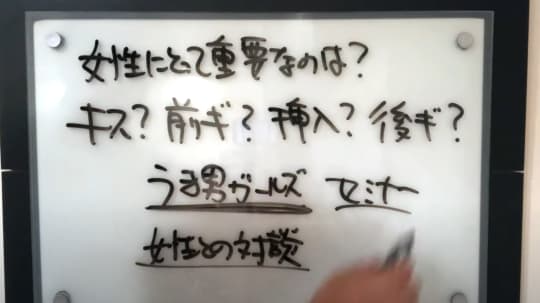 女性にとって重要なのは?
キス? 前ギ? 挿入? 後ギ?
うき男ガールズ セミナー
女性との対談